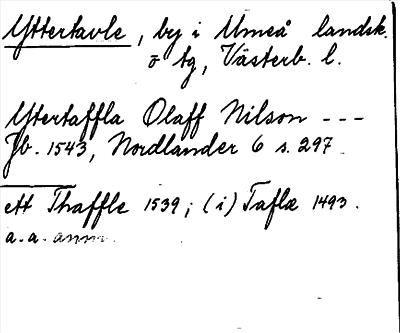 Yttertavle, by i Umeå landsk.
o tg, Västerb. l.
Yttertaffla Olaff Nilson ---
Jb. 1543, Nordlander 6 s. 297.
ett Thaffle 1539; (i) Taflæ 1493.
a. a. anm.